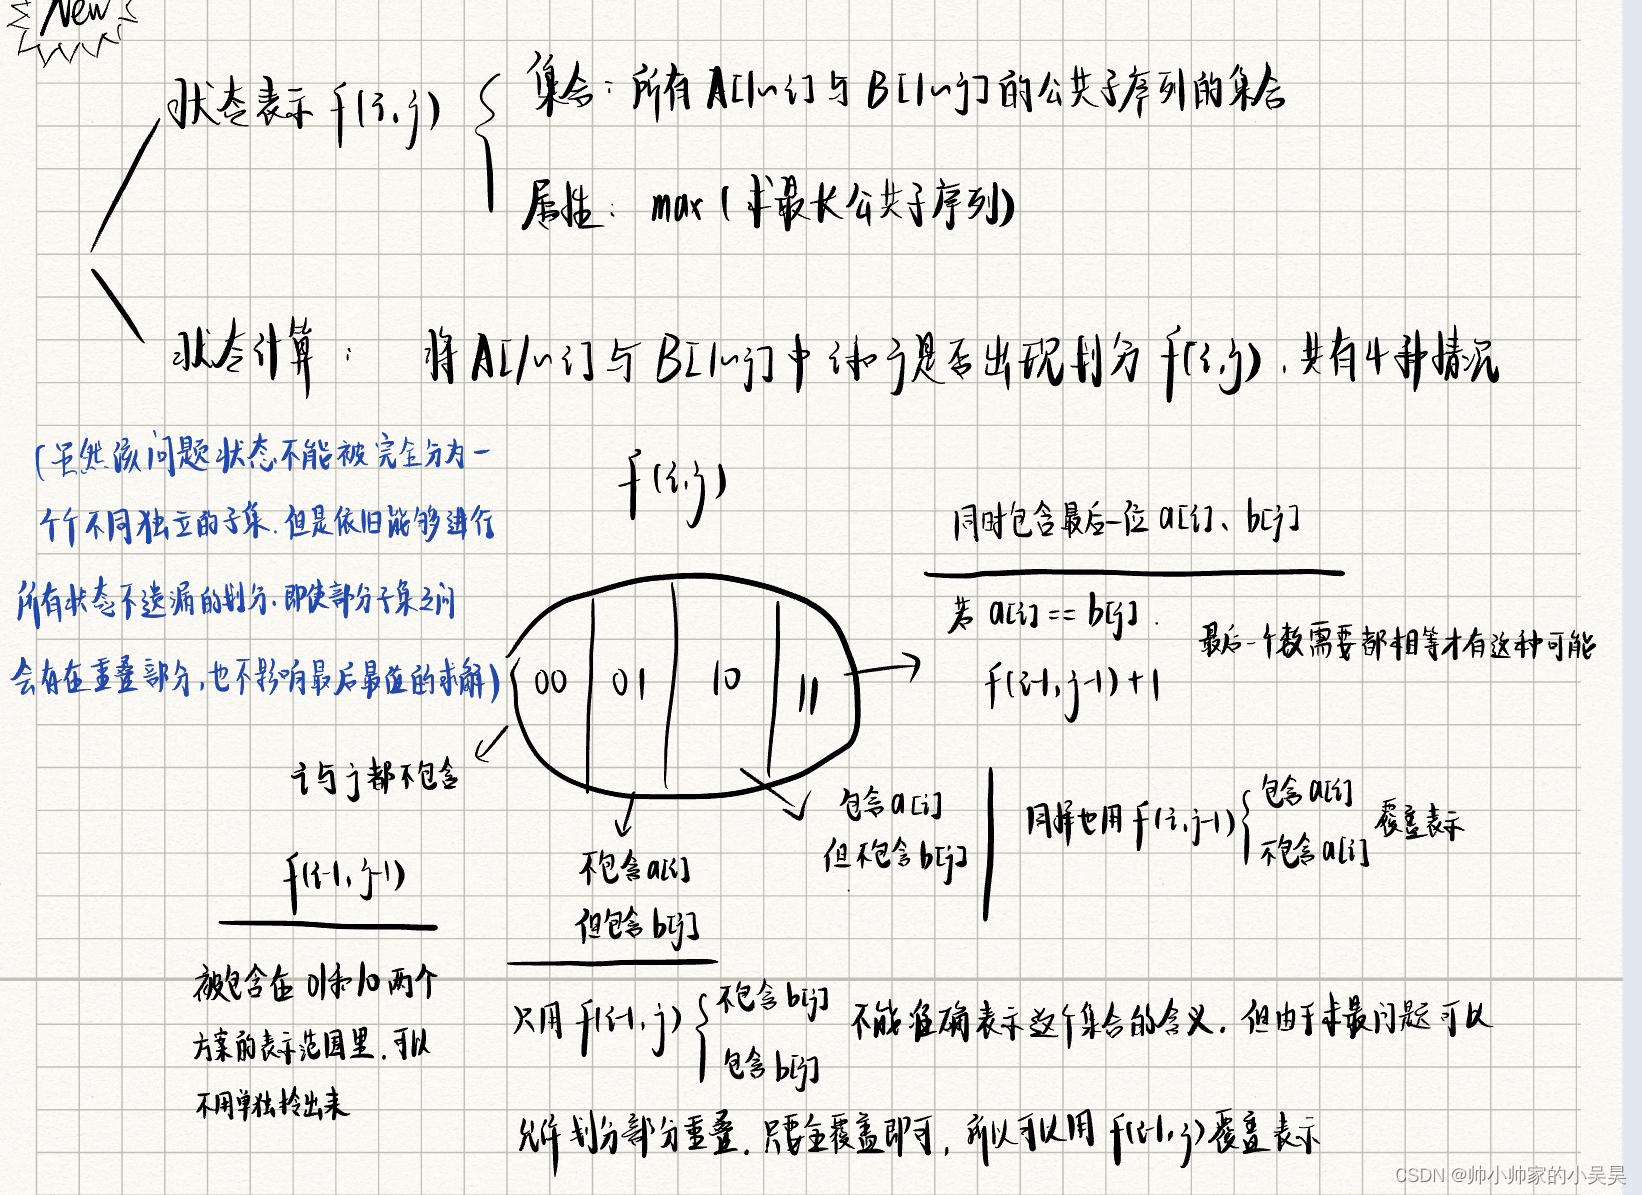 New
状态表示 f(i,j)
集合：所有A[1~i]与B[1~j]的公共子序列的集合
属性： max (求最长公共子序列)
状态计算： 将A[1~i]与B[1~j]中i和j是否出现划分 f(i,j)，共有4种情况
(虽然该问题状态不能被完全分为一
个个不同独立的子集，但是依旧能够进行
所有状态不遗漏的划分，即使部分子集之间
会存在重叠部分，也不影响最后最值的求解)
f(i,j)
00 01 10 11
同时包含最后一位 a[i]、b[j]
若 a[i]==b[j].
最后一个数需要都相等才有这种可能
f(i-1,j-1)+1
i与j都不包含
f(i-1,j-1)
被包含在 01和10两个
方案的表示范围里，可以
不用单独拎出来
不包含a[i]
但包含b[j]
包含a[i]
但不包含b[j]
同样也用 f(i,j-1)
包含a[i]
不包含a[i]
覆盖表示
只用 f(i-1,j)
不包含b[j]
包含b[j]
不能准确表示这个集合的含义，但由于求最问题可以
允许划分部分重叠，只要全覆盖即可，所以可以用 f(i-1,j)覆盖表示
CSDN @帅小帅家的小吴昊